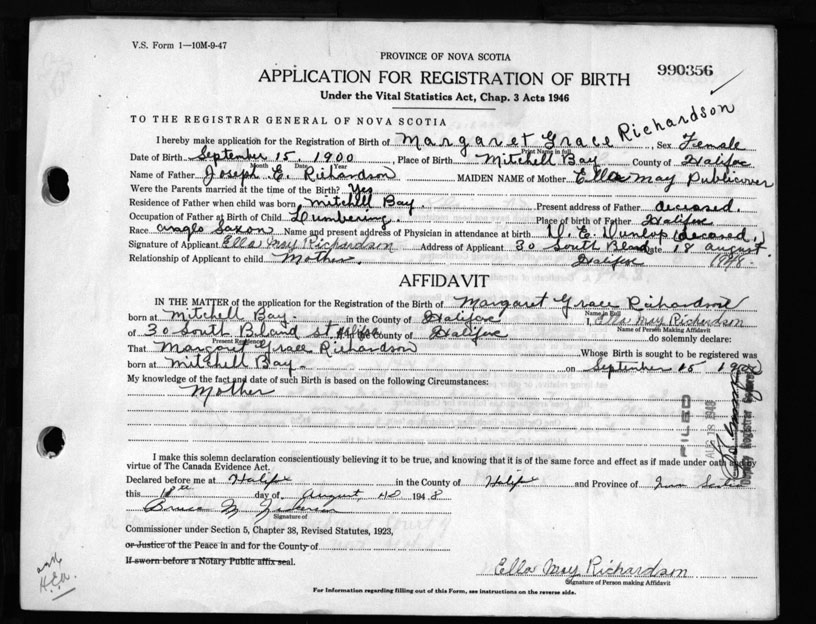 V.S. Form 1—10M-9-47
PROVINCE OF NOVA SCOTIA
990356
APPLICATION FOR REGISTRATION OF BIRTH
Under the Vital Statistics Act, Chap. 3 Acts 1946
TO THE REGISTRAR GENERAL OF NOVA SCOTIA
I hereby make application for the Registration of Birth of Margaret Grace Richardson, Sex Female
Print Name in full
Date of Birth September 15, 1900, Place of Birth Mitchell Bay County of Halifax
Month Date Year
Name of Father Joseph E. Richardson MAIDEN NAME of Mother Ella May Publicover
Were the Parents married at the time of the Birth? Yes
Residence of Father when child was born Mitchell Bay. Present address of Father deceased.
Occupation of Father at Birth of Child Lumbering. Place of birth of Father Halifax
Race Anglo Saxon Name and present address of Physician in attendance at birth D. E. Dunlop (decased)
Signature of Applicant Ella May Richardson Address of Applicant 30 South Bland Date 18 August
Relationship of Applicant to child Mother. Halifax 1948
AFFIDAVIT
IN THE MATTER of the application for the Registration of the Birth of Margaret Grace Richardson
Name in Full
born at Mitchell Bay. in the County of Halifax I, Ella May Richardson
Name of Person Making Affidavit
of 30 South Bland St in the County of Halifax do solemnly declare:
Present Residence
That Margaret Grace Richardson Whose Birth is sought to be registered was
born at Mitchell Bay. on September 15 1900
My knowledge of the fact and date of such Birth is based on the following Circumstances:
Mother
FILED
AUG 18 1948
Deputy Registrar General
I make this solemn declaration conscientiously believing it to be true, and knowing that it is of the same force and effect as if made under oath and by
virtue of The Canada Evidence Act.
Declared before me at Halifax in the County of Halifax and Province of Nova Scotia
this 18th day of August, 1948
Bruce M.
Signature of
Commissioner under Section 5, Chapter 38, Revised Statutes, 1923,
or Justice of the Peace in and for the County of
If sworn before a Notary Public affix seal.
Ella May Richardson
Signature of Person making Affidavit
For Information regarding filling out of this Form, see instructions on the reverse side.